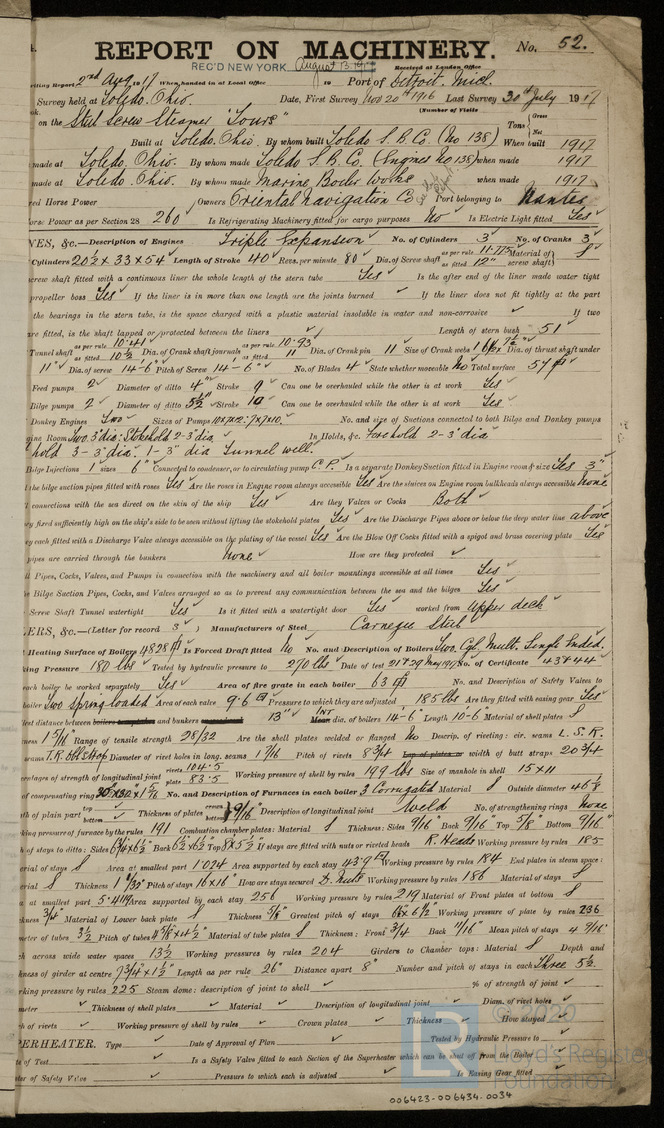 REPORT ON MACHINERY. No. 52.
REC'D NEW YORK August 13 1917 Received at London Office
riting Report 2nd Aug 1917 When handed in at Local Office 19 Port of Detroit. Mich.
Survey held at Toledo. Ohio. Date, First Survey Nov 20th 1916 Last Survey 30th July 1917
(Number of Visits
on the Steel Screw Steamer "Tours" Tons { Gross Net
Built at Toledo. Ohio. By whom built Toledo S. B. Co. (No 138) When built 1917
made at Toledo. Ohio. By whom made Toledo S. B. Co. (Engines No 138) when made 1917
made at Toledo. Ohio. By whom made Marine Boiler Works when made 1917
red Horse Power Owners Oriental Navigation Co Port belonging to Nantes
orse Power as per Section 28 260 Is Refrigerating Machinery fitted for cargo purposes No Is Electric Light fitted Yes
NES, &c.—Description of Engines Triple Expansion No. of Cylinders 3 No. of Cranks 3
Cylinders 20½ x 33 x 54 Length of Stroke 40 Revs. per minute 80 Dia. of Screw shaft as per rule 11.775 as fitted 12" Material of screw shaft } S
screw shaft fitted with a continuous liner the whole length of the stern tube Yes Is the after end of the liner made water tight
propeller boss Yes If the liner is in more than one length are the joints burned ✓ If the liner does not fit tightly at the part
the bearings in the stern tube, is the space charged with a plastic material insoluble in water and non-corrosive ✓ If two
are fitted, is the shaft lapped or protected between the liners ✓ Length of stern bush 51
Tunnel shaft as per rule 10.41 as fitted 10½ Dia. of Crank shaft journals as per rule 10.93 as fitted 11 Dia. of Crank pin 11 Size of Crank webs Dia. of thrust shaft under
11" Dia. of screw 14-6 Pitch of Screw 14-6" No. of Blades 4 State whether moveable No Total surface 57
Feed pumps 2 Diameter of ditto 4" Stroke 9 Can one be overhauled while the other is at work Yes
Bilge pumps 2 Diameter of ditto Stroke Can one be overhauled while the other is at work Yes
Donkey Engines Two Sizes of Pumps 10x7x12: 7x7x10. No. and size of Suctions connected to both Bilge and Donkey pumps
gine Room Two. 3" dia: Stokehold 2-3" dia In Holds, &c. Forehold 2-3" dia
hold 3-3" dia. 1-3" dia Tunnel well.
Bilge Injections 1 sizes 6" Connected to condenser, or to circulating pump C.P. Is a separate Donkey Suction fitted in Engine room & size Yes 3"
l the bilge suction pipes fitted with roses Yes Are the roses in Engine room always accessible Yes Are the sluices on Engine room bulkheads always accessible none
l connections with the sea direct on the skin of the ship Yes Are they Valves or Cocks Both
ey fixed sufficiently high on the ship's side to be seen without lifting the stokehold plates Yes Are the Discharge Pipes above or below the deep water line above
ey each fitted with a Discharge Valve always accessible on the plating of the vessel Yes Are the Blow Off Cocks fitted with a spigot and brass covering plate Yes
pipes are carried through the bunkers none How are they protected ✓
ll Pipes, Cocks, Valves, and Pumps in connection with the machinery and all boiler mountings accessible at all times Yes
he Bilge Suction Pipes, Cocks, and Valves arranged so as to prevent any communication between the sea and the bilges Yes
Screw Shaft Tunnel watertight Yes Is it fitted with a watertight door Yes worked from Upper deck
LERS, &c.—(Letter for record 3) Manufacturers of Steel Carnegie Steel
l Heating Surface of Boilers 4828 Is Forced Draft fitted No No. and Description of Boilers Two. Cyl. Mult. Single Ended.
king Pressure 180 lbs Tested by hydraulic pressure to 270 lbs Date of test No. of Certificate 43 & 44
each boiler be worked separately Yes Area of fire grate in each boiler 63 No. and Description of Safety Valves to
boiler Two Spring loaded Area of each valve 9.6 Pressure to which they are adjusted 185 lbs Are they fitted with easing gear Yes
est distance between boilers and bunkers 13" INT dia. of boilers 14-6" Length 10-6" Material of shell plates S
ness 1 5/16" Range of tensile strength 28/32 Are the shell plates welded or flanged No Descrip. of riveting: cir. seams L. S. R.
seams T.R. dbl Strap Diameter of rivet holes in long. seams 1 7/16 Pitch of rivets 8¾ Lap of plates or width of butt straps 20¾
centages of strength of longitudinal joint rivets 104.5 plate 83.5 Working pressure of shell by rules 199 lbs Size of manhole in shell 15 x 11
of compensating ring No. and Description of Furnaces in each boiler 3 Corrugated Material S Outside diameter
th of plain part top bottom Thickness of plates crown bottom } 9/16" Description of longitudinal joint Weld No. of strengthening rings none
king pressure of furnace by the rules 191 Combustion chamber plates: Material S Thickness: Sides 9/16" Back 9/16" Top 5/8" Bottom 9/16"
h of stays to ditto: Sides Back 6½ x 6½" Top If stays are fitted with nuts or riveted heads R. Heads Working pressure by rules 185
erial of stays S Area at smallest part 1.024 Area supported by each stay 43.9 Working pressure by rules 184 End plates in steam space:
erial S Thickness Pitch of stays 16 x 16" How are stays secured D. Nuts Working pressure by rules 186 Material of stays S
a at smallest part 5.419 Area supported by each stay 256 Working pressure by rules 219 Material of Front plates at bottom S
kness ¾" Material of Lower back plate S Thickness 5/8" Greatest pitch of stays Working pressure of plate by rules 236
meter of tubes 3½ Pitch of tubes Material of tube plates S Thickness: Front ¾ Back 11/16" Mean pitch of stays
h across wide water spaces 13½ Working pressures by rules 204 Girders to Chamber tops: Material S Depth and
kness of girder at centre 7¾ x 1½" Length as per rule 26" Distance apart 8" Number and pitch of stays in each Three 5½
rking pressure by rules 225 Steam dome: description of joint to shell ✓ % of strength of joint ✓
meter ✓ Thickness of shell plates ✓ Material ✓ Description of longitudinal joint ✓ Diam. of rivet holes ✓
h of rivets ✓ Working pressure of shell by rules ✓ Crown plates ✓ Thickness ✓ How stayed ✓
PERHEATER. Type ✓ Date of Approval of Plan ✓ Tested by Hydraulic Pressure to ✓
te of Test ✓ Is a Safety Valve fitted to each Section of the Superheater which can be shut off from the Boiler ✓
ter of Safety Valve ✓ Pressure to which each is adjusted ✓ Is Easing Gear fitted ✓
© 2020
Lloyd's Register
Foundation
006423-006434-0034